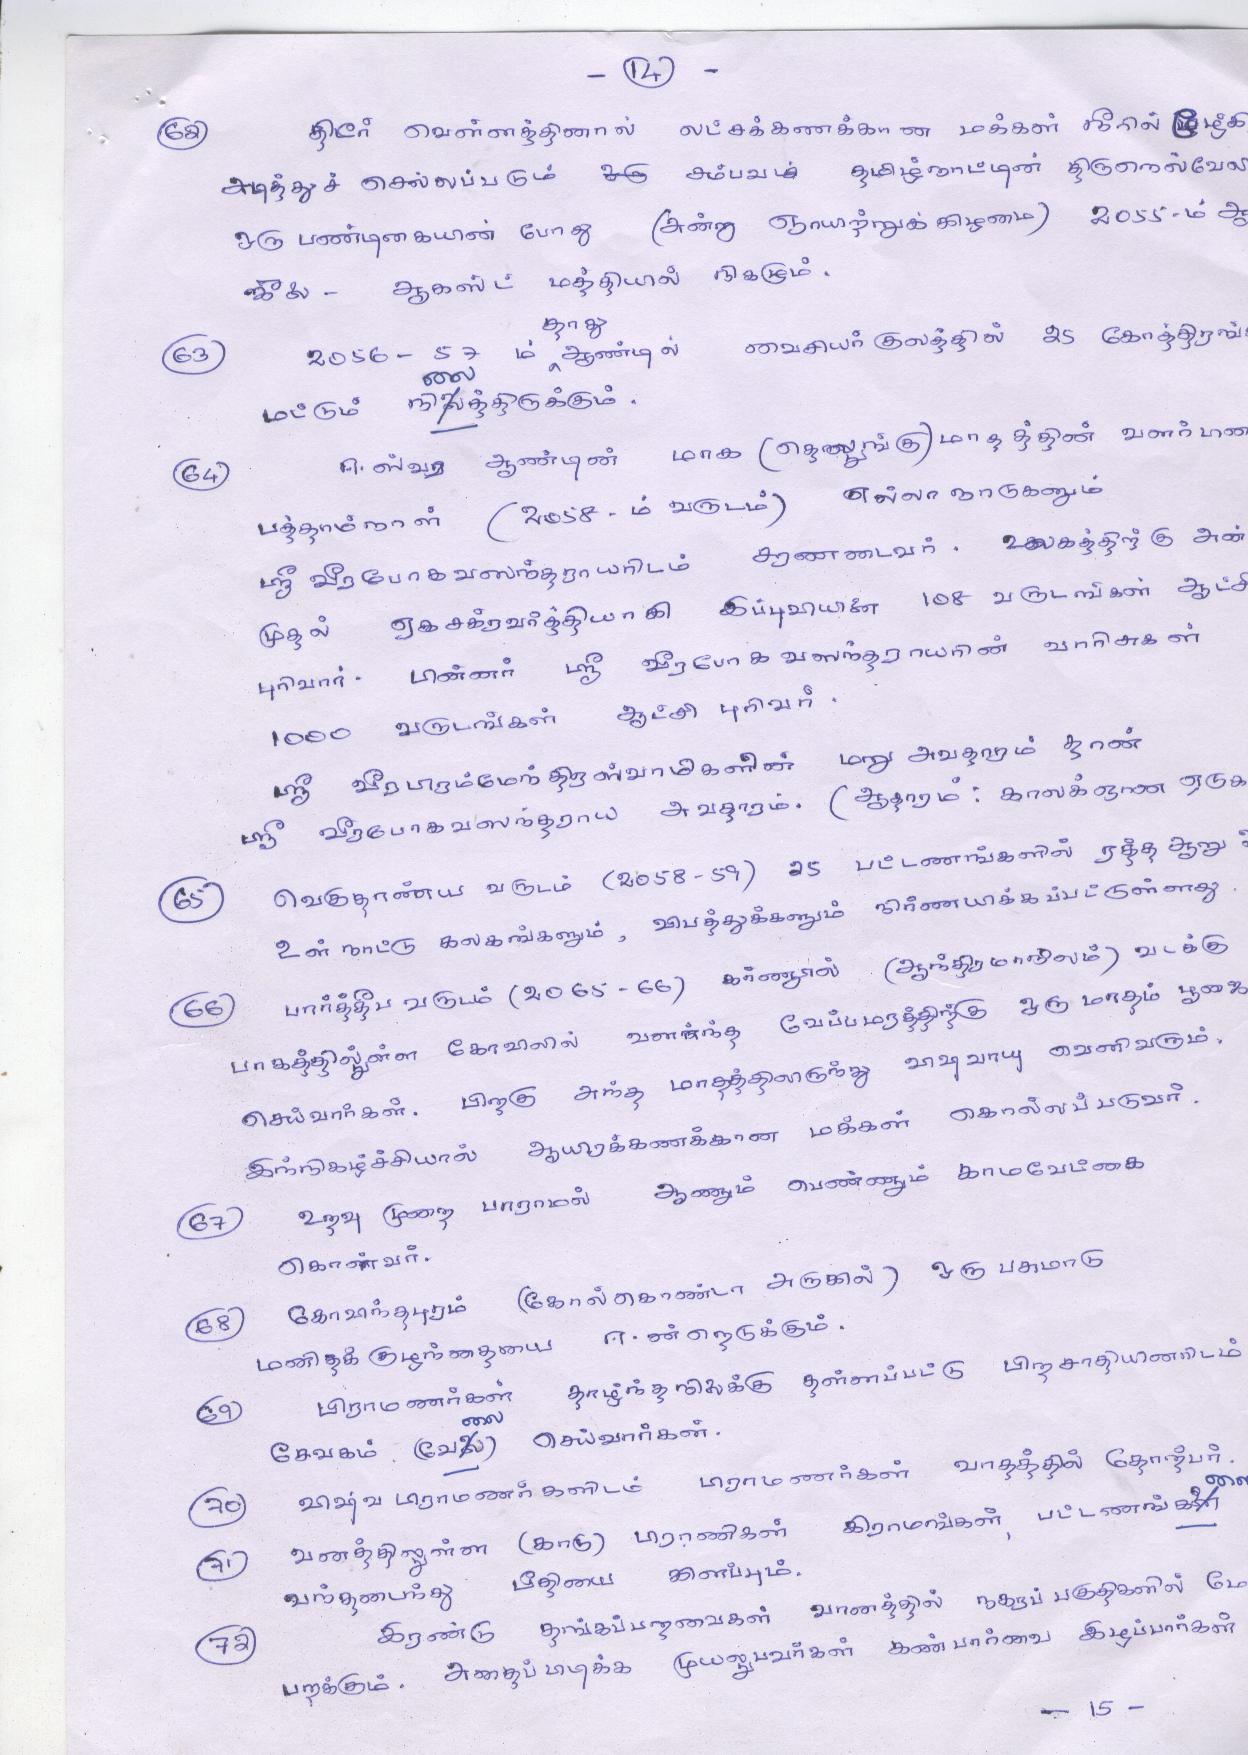 - 14 -
62 திடீர் வெள்ளத்தினால் லட்சக்கணக்கான மக்கள் நீரில் மூழ்கி
அடித்துச் செல்லப்படும் ஒரு சம்பவம் தமிழ்நாட்டின் திருநெல்வேலி
ஒரு பண்டிகையின் போது (அன்று ஞாயிற்றுக்கிழமை) 2055-ம் ஆ
ஜீலை - ஆகஸ்ட் மத்தியில் நிகழும்.
63 2056-57 ம் தாது ஆண்டில் வைசியர் குலத்தில் 25 கோத்திரங்க
மட்டும் நிலைத்திருக்கும்.
64 ஈஸ்வர ஆண்டின் மாக (தெலுங்கு) மாதத்தின் வளர்பிறை
பத்தாம்நாள் (2058-ம் வருடம்) எல்லா நாடுகளும்
ஸ்ரீ வீரபோகவஸந்தராயரிடம் சரணடைவர். உலகத்திற்கு அன்
முதல் ஏகசக்ரவர்த்தியாகி இப்புவியின் 108 வருடங்கள் ஆட்சி
புரிவார். பின்னர் ஸ்ரீ வீரபோகவஸந்தராயரின் வாரிசுகள்
1000 வருடங்கள் ஆட்சி புரிவர்.
ஸ்ரீ வீரபிரம்மேந்திரஸ்வாமிகளின் மறு அவதாரம் தான்
ஸ்ரீ வீரபோகவஸந்தராய அவதாரம். (ஆதாரம்: காலக்ஞான ஏடுக
65 வெகுதான்ய வருடம் (2058-59) 25 பட்டணங்களில் ரத்த ஆறு
உள்நாட்டு கலகங்களும், விபத்துக்களும் நிர்ணயிக்கப்பட்டுள்ளது.
66 பார்த்தீப வருடம் (2065-66) கர்னூல் (ஆந்திரமாநிலம்) வடக்கு
பாகத்திலுள்ள கோவிலில் வளர்ந்த வேப்பமரத்திற்கு ஒரு மாதம் பூஜை
செய்வார்கள். பிறகு அந்த மாதத்திலிருந்து விஷவாயு வெளிவரும்.
இந்நிகழ்ச்சியால் ஆயிரக்கணக்கான மக்கள் கொல்லப்படுவர்.
67 உறவு முறை பாராமல் ஆணும் பெண்ணும் காமவேட்கை
கொள்வர்.
68 கோவிந்தபுரம் (கோல்கொண்டா அருகில்) ஒரு பசுமாடு
மனிதக் குழந்தையை ஈன்றெடுக்கும்.
69 பிராமணர்கள் தாழ்ந்தநிலைக்கு தள்ளப்பட்டு பிறசாதியினரிடம்
சேவகம் (வேலை) செய்வார்கள்.
70 விஷ்வ பிராமணர்களிடம் பிராமணர்கள் வாதத்தில் தோற்பர்.
71 வனத்திலுள்ள (காடு) பிராணிகள் கிராமங்கள், பட்டணங்களை
வந்தடைந்து பீதியை கிளப்பும்.
72 இரண்டு தங்கப்பறவைகள் வானத்தில் நகரப் பகுதிகளில் மே
பறக்கும். அதைப்பிடிக்க முயலுபவர்கள் கண்பார்வை இழப்பார்கள்
- 15 -